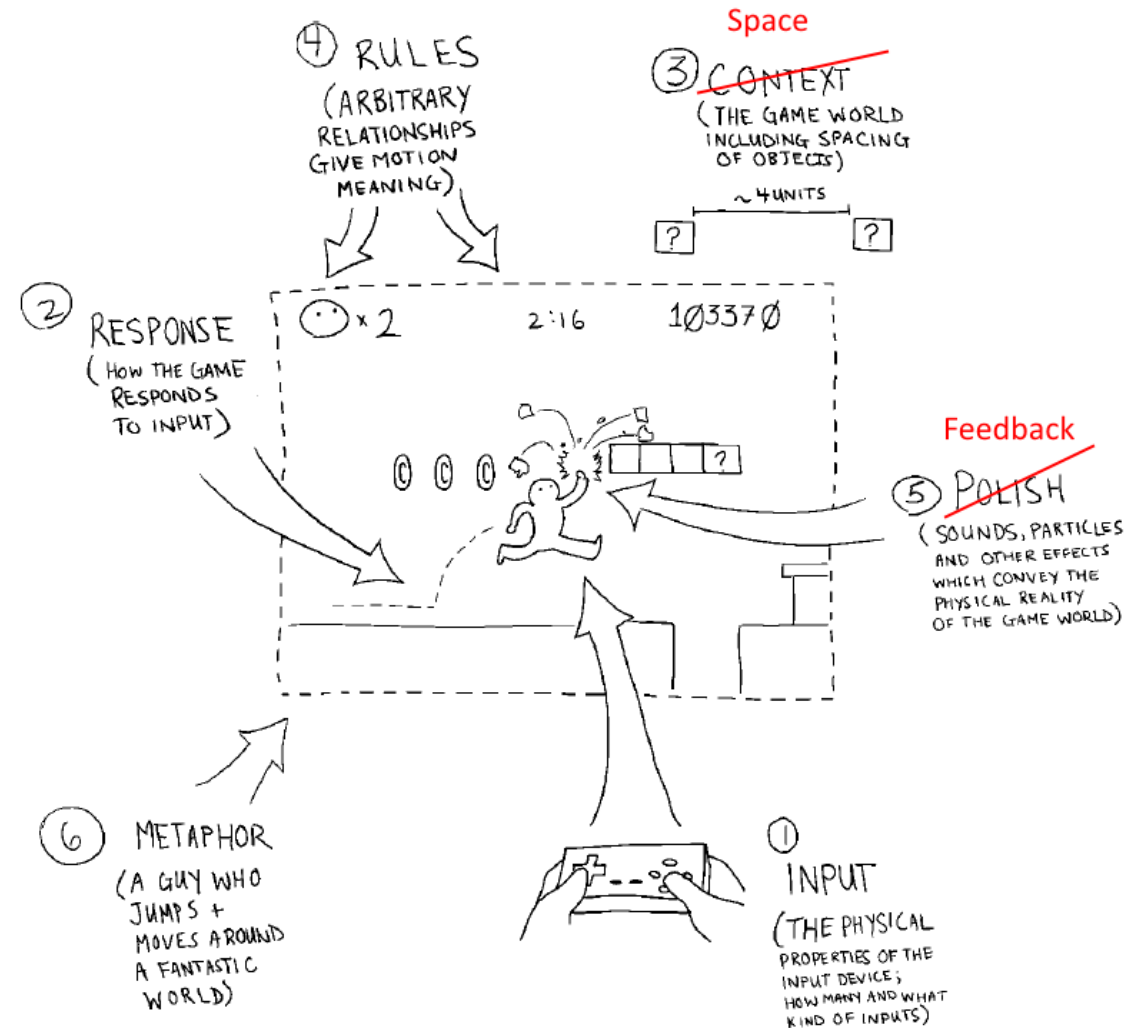 4 RULES
(ARBITRARY
RELATIONSHIPS
GIVE MOTION
MEANING)
Space
3 CONTEXT
(THE GAME WORLD
INCLUDING SPACING
OF OBJECTS)
~ 4 UNITS
? ?
2 RESPONSE
(HOW THE GAME
RESPONDS
TO INPUT)
x 2 2:16 103370
C C C ?
Feedback
5 POLISH
(SOUNDS, PARTICLES
AND OTHER EFFECTS
WHICH CONVEY THE
PHYSICAL REALITY
OF THE GAME WORLD)
6 METAPHOR
(A GUY WHO
JUMPS +
MOVES AROUND
A FANTASTIC
WORLD)
1
INPUT
(THE PHYSICAL
PROPERTIES OF THE
INPUT DEVICE;
HOW MANY AND WHAT
KIND OF INPUTS)